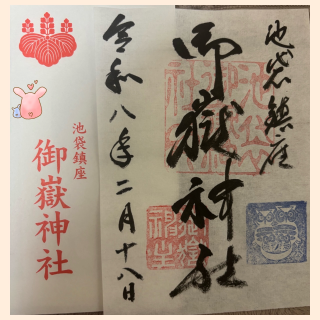 池袋鎮座
御嶽神社
令和八年二月十八日
御嶽神社
池袋鎮座